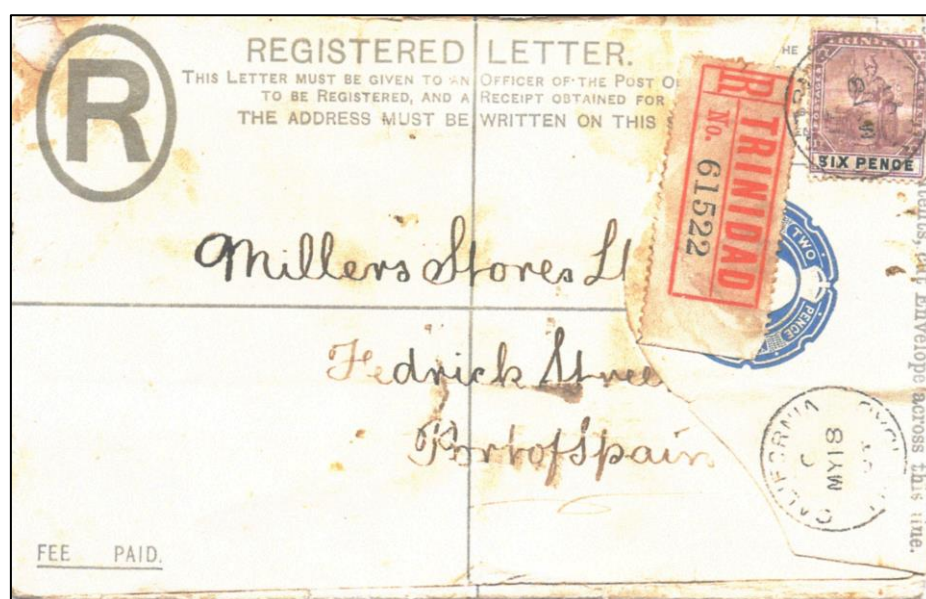 REGISTERED LETTER.
THIS LETTER MUST BE GIVEN TO AN OFFICER OF THE POST OF
TO BE REGISTERED, AND A RECEIPT OBTAINED FOR
THE ADDRESS MUST BE WRITTEN ON THIS
R
HE
TRINIDAD
SIX PENCE
R TRINIDAD
No. 61522
TWO
PENCE
Millers Stores Lt
Fedrick Stree
Port of Spain
CALIFORNIA
MY 18
Envelope across this line.
FEE PAID.